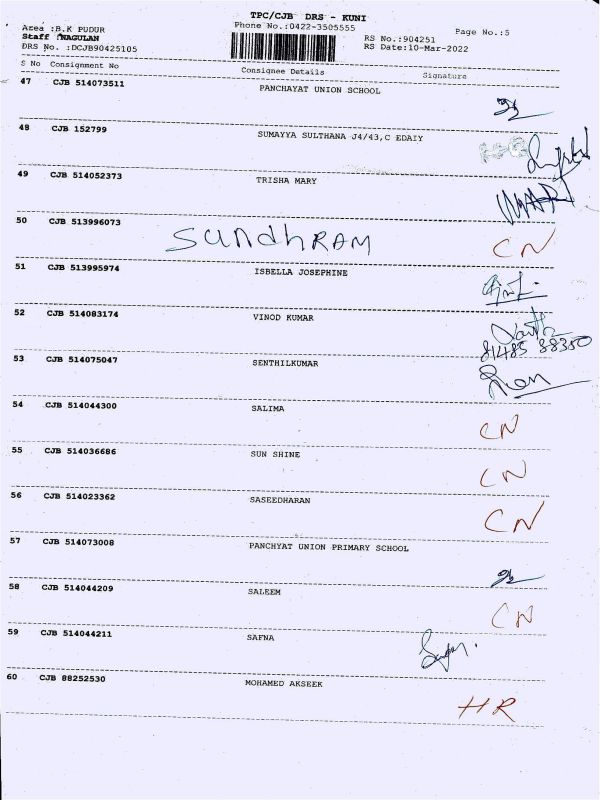 TPC/CJB DRS - KUNI
Area :B.K PUDUR
Phone No.:0422-3505555
Page No.:5
Staff :NAGULAN
RS No.:904251
DRS No. :DCJB90425105
RS Date:10-Mar-2022
S No Consignment No Consignee Details Signature
47 CJB 514073511 PANCHAYAT UNION SCHOOL
48 CJB 152799 SUMAYYA SULTHANA J4/43,C EDAIY
49 CJB 514052373 TRISHA MARY
50 CJB 513996073 SundhRAM CN
51 CJB 513995974 ISBELLA JOSEPHINE
52 CJB 514083174 VINOD KUMAR
81485 88350
53 CJB 514075047 SENTHILKUMAR
54 CJB 514044300 SALIMA CN
55 CJB 514036686 SUN SHINE CN
56 CJB 514023362 SASEEDHARAN CN
57 CJB 514073008 PANCHYAT UNION PRIMARY SCHOOL
58 CJB 514044209 SALEEM CN
59 CJB 514044211 SAFNA
60 CJB 88252530 MOHAMED AKSEEK HR